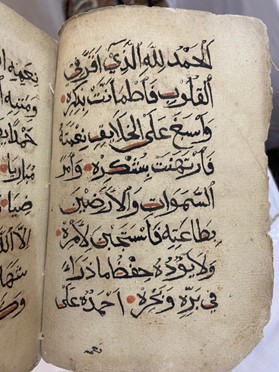 الحمد لله الذي اقر في
القلوب فاطمأنت بذكره
واسبغ على الخلايق نعمته
فارتهنت بشكره • وامر
السموات والارضين
بطاعته فاستحين لامره
ولا يؤده حفظ ما ذرا
في بره وبحره • احمده على
نعمه
نعمه
ومننه
الا الله